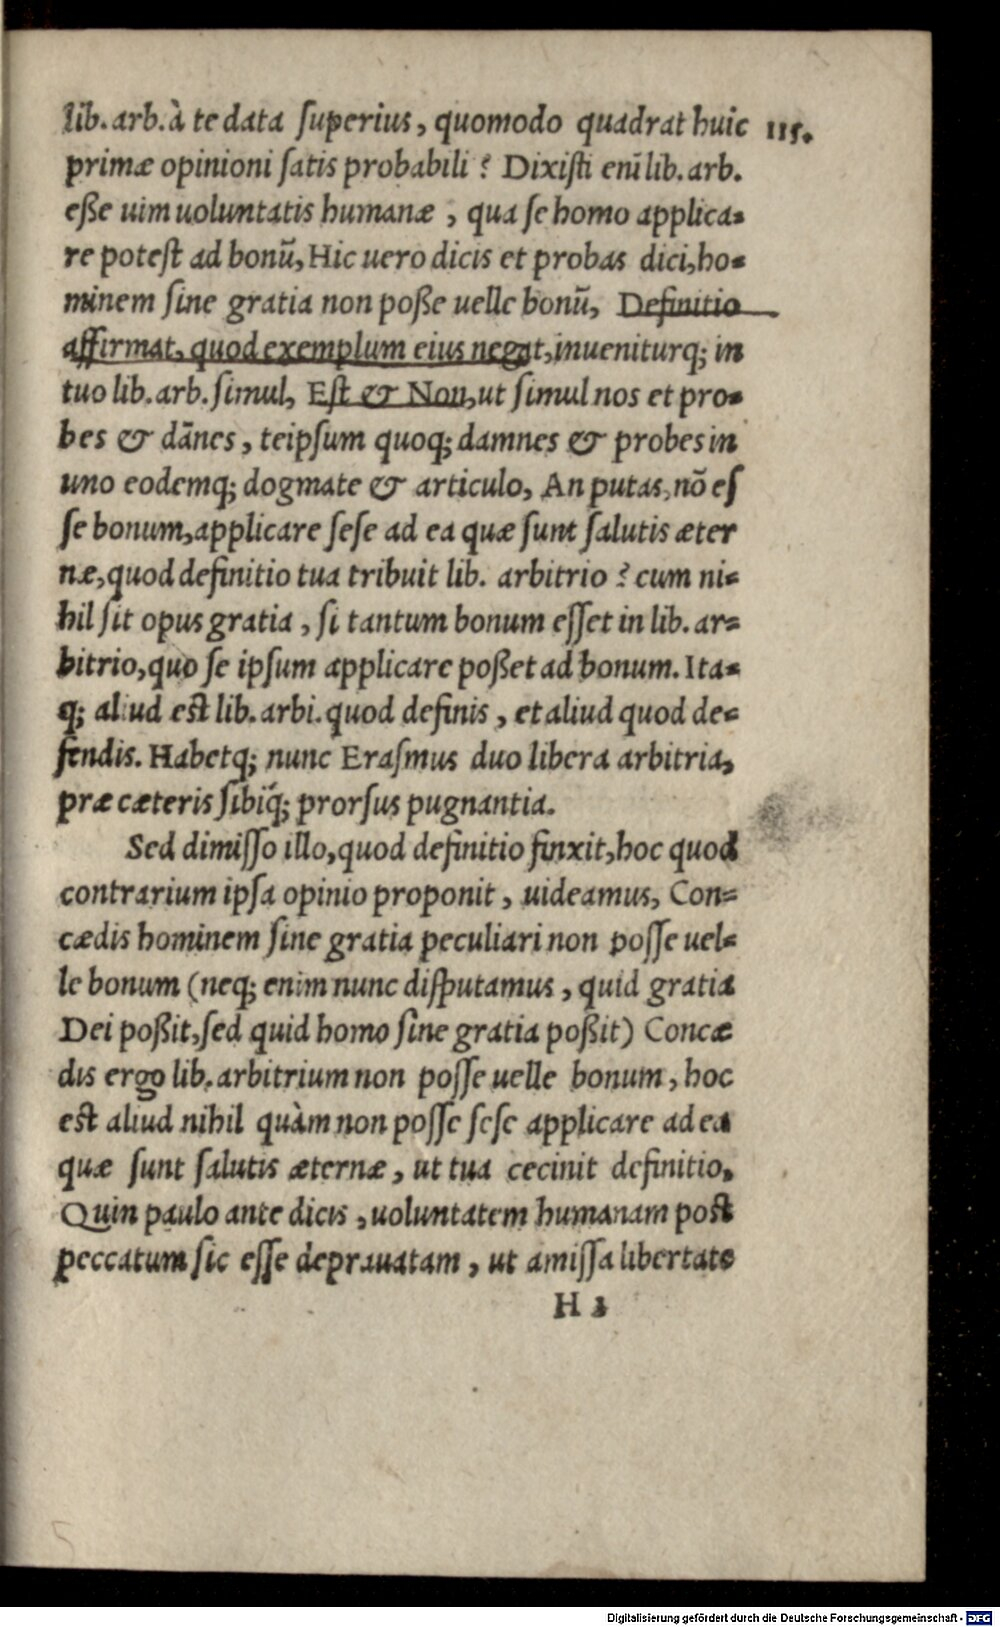 lib. arb. à te data ſuperius, quomodo quadrat huic 115.
primæ opinioni ſatis probabili? Dixiſti enī lib. arb.
eße uim uoluntatis humanæ, qua ſe homo applica-
re poteſt ad bonū, Hic uero dicis et probas dici, ho-
minem ſine gratia non poße uelle bonū, Definitio
affirmat, quod exemplum eius negat, inueniturq; in
tuo lib. arb. ſimul, Eſt & Non, ut ſimul nos et pro-
bes & dānes, teipſum quoq; damnes & probes in
uno eodemq; dogmate & articulo, An putas, nō eſ
ſe bonum, applicare ſeſe ad ea quæ ſunt ſalutis æter
næ, quod definitio tua tribuit lib. arbitrio? cum ni-
hil ſit opus gratia, ſi tantum bonum eſſet in lib. ar-
bitrio, quo ſe ipſum applicare poßet ad bonum. Ita-
q; aliud eſt lib. arbi. quod definis, et aliud quod de-
fendis. Habetq; nunc Eraſmus duo libera arbitria,
præ cæteris ſibiq́; prorſus pugnantia.
Sed dimiſſo illo, quod definitio finxit, hoc quod
contrarium ipſa opinio proponit, uideamus, Con-
cædis hominem ſine gratia peculiari non poſſe uel-
le bonum (neq; enim nunc diſputamus, quid gratia
Dei poßit, ſed quid homo ſine gratia poßit) Concæ
dis ergo lib. arbitrium non poſſe uelle bonum, hoc
eſt aliud nihil quàm non poſſe ſeſe applicare ad ea
quæ ſunt ſalutis æternæ, ut tua cecinit definitio.
Quin paulo ante dicis, uoluntatem humanam poſt
peccatum ſic eſſe deprauatam, ut amiſſa libertate
H 2
Digitalisierung gefördert durch die Deutsche Forschungsgemeinschaft - DFG